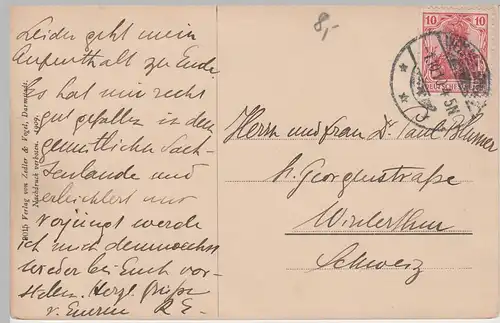 Leider geht mein
Aufenthalt zu Ende.
Es hat mir recht
gut gefallen in dem
gemütlichen Sach-
senlande und
erleichtert und
verjüngt werde
ich mich demnaechst
wieder bei Euch vor-
stellen. Herzl. Grüsse
v. Eurem R E-
8,-
10
DEUTSCHES
Herrn und Frau Dr. Paul
h. Georgenstraße
Winterthur
Schweiz
Verlag von Zedler & Vogel, Darmstadt.
Nachdruck verboten. 1909.